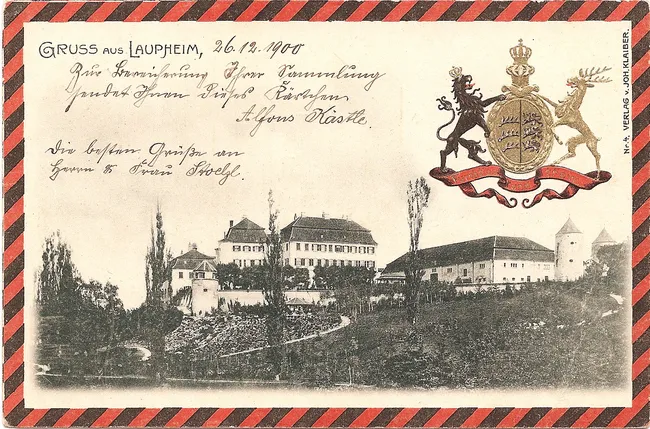 Gruss aus Laupheim, 26.12.1900
Zur Bereicherung Ihrer Sammlung
sendet Ihnen dieses Kärtchen
Alfons Kästle.
Die besten Grüße an
Herrn & Frau
Nr. 4. VERLAG v. JOH. KLAIBER.